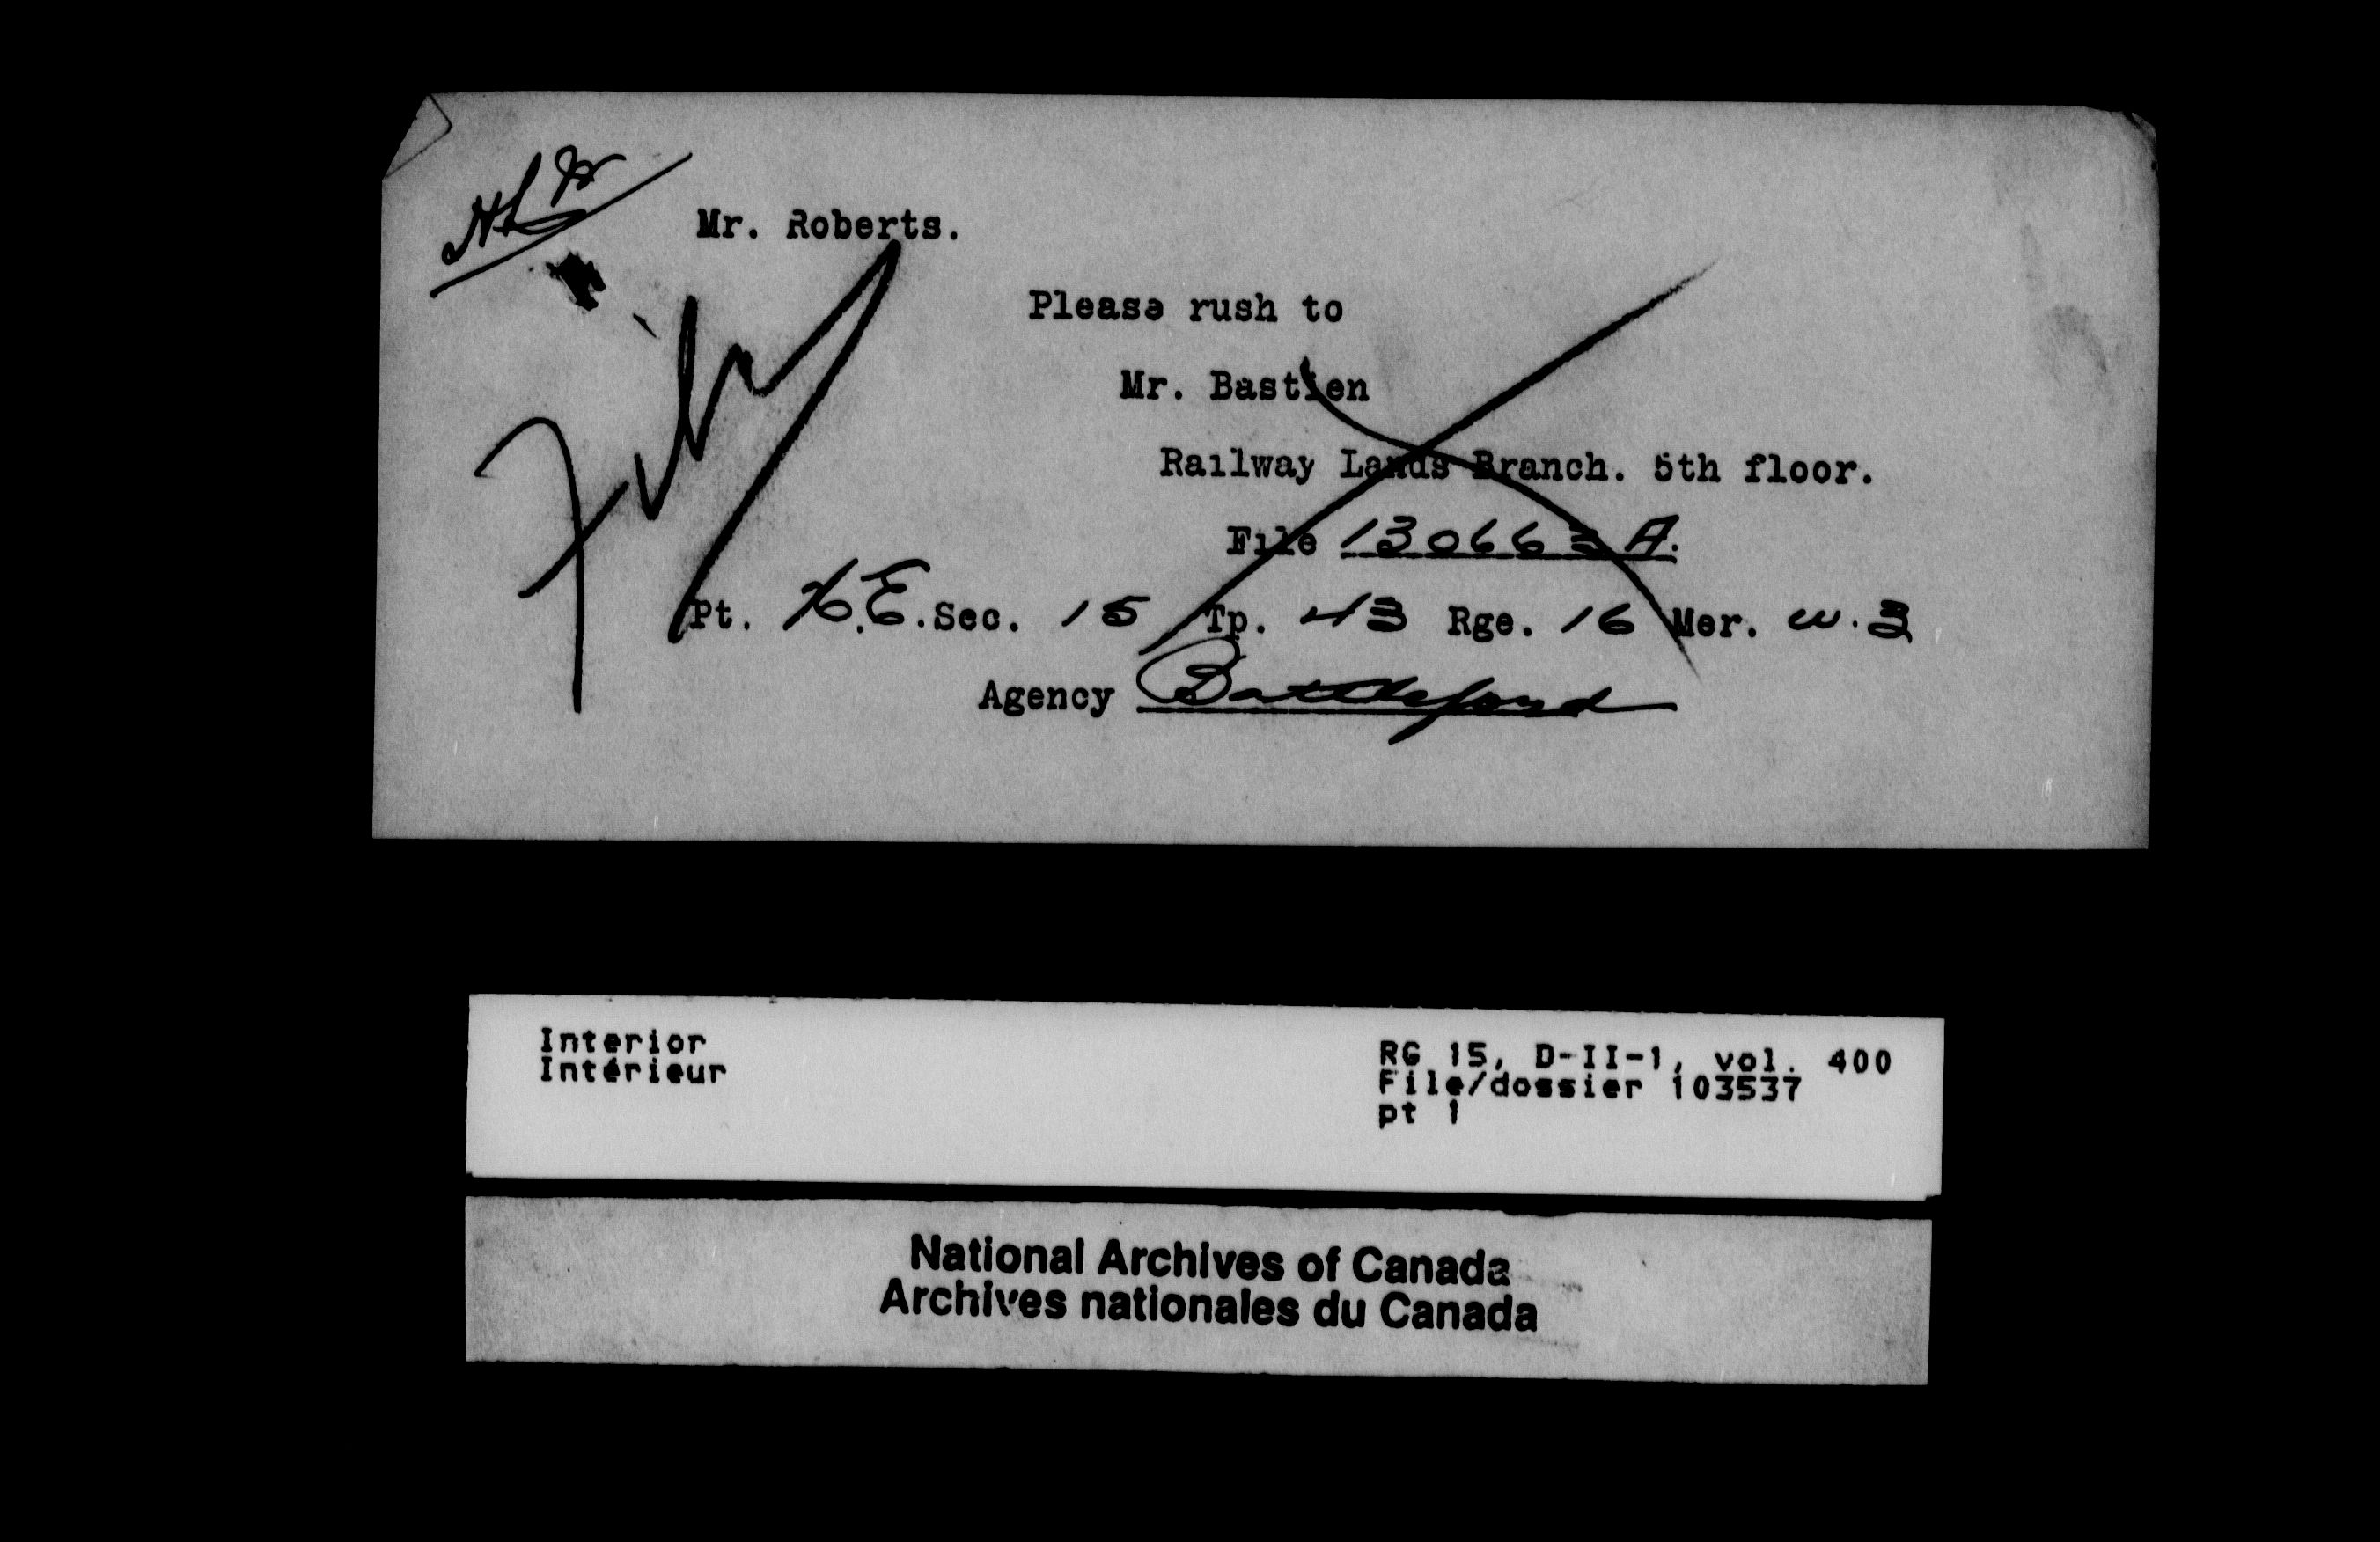 Mr. Roberts.
Please rush to
Mr. Bastien
Railway Lands Branch. 5th floor.
File 130663 A.
Pt. N.E. Sec. 15 Tp. 43 Rge. 16 Mer. W.3
Agency Battleford
File
Interior
Intérieur
RG 15, D-II-1, vol. 400
File/dossier 103537
pt 1
National Archives of Canada
Archives nationales du Canada